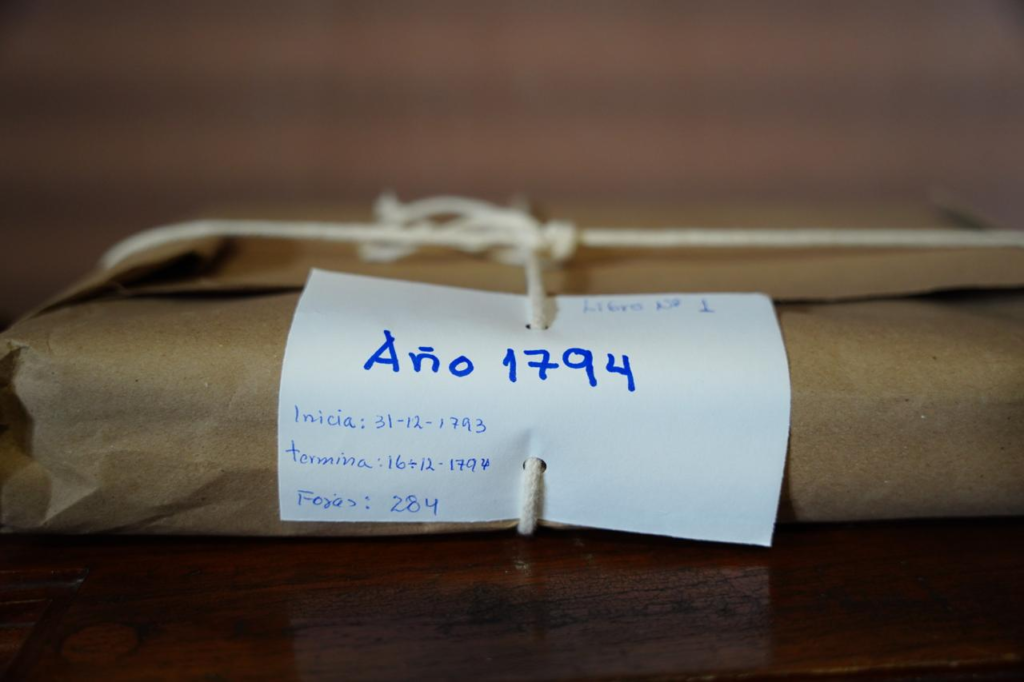 Libro Nº 1
Año 1794
Inicia: 31-12-1793
termina: 16-12-1794
Fojas: 284